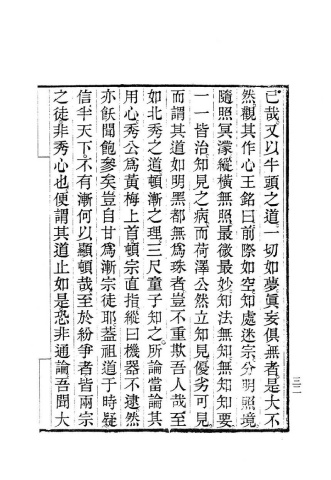 已哉又以牛頭之道一切如夢眞妄俱無者是大不
然觀其作心王銘曰前際如空知處迷宗分明照境
隨照冥濛縱橫無照最微最妙知法無知無知知要
一一皆治知見之病而荷澤公然立知見優劣可見
而謂其道如明黑都無爲珠者豈不重欺吾人哉至
如北秀之道頓漸之理三尺童子知之所論當論其
用心秀公爲黃梅上首頓宗直指縱曰機器不逮然
亦飫聞飽參矣豈自甘爲漸宗徒耶蓋祖道于時疑
信半天下不有漸何以顯頓哉至於紛爭者皆兩宗
之徒非秀心也便謂其道止如是恐非通論吾聞大
三二